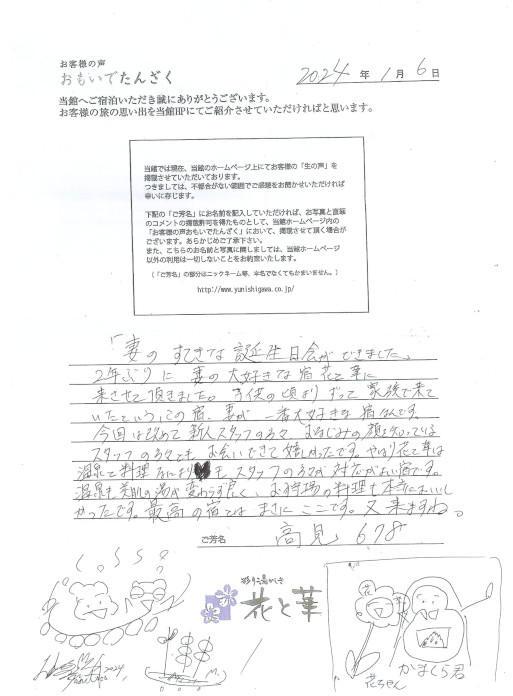 お客様の声
おもいでたんざく
2024年1月6日
当館へご宿泊いただき誠にありがとうございます。
お客様の旅の思い出を当館HPにてご紹介させていただければと思います。
当館では現在、当館のホームページ上にてお客様の「生の声」を
掲載させていただいております。
つきましては、不都合がない範囲でご感想をお聞かせいただければ
幸いに存じます。
下記の「ご芳名」にお名前を記入していただければ、お写真と直筆
のコメントの掲載許可を得たものとして、当館ホームページ内の
「お客様の声おもいでたんざく」において、掲載させて頂く場合が
ございます。あらかじめご了承下さい。
また、こちらのお名前と写真に関しましては、当館ホームページ
以外の利用は一切しないことをお約束いたします。
(「ご芳名」の部分はニックネーム等、本名でなくてもかまいません。)
http://www.yunishigawa.co.jp/
「妻の すてきな 誕生日会ができました。
2年ぶりに 妻の大好きな宿花と華に
来させて頂きました。子供の頃よりずって 家族で来て
いたという、この宿、妻が一番大好きな宿なんです。
今回は改めて新人スタッフの方々 おなじみの顔を知っている
スタッフの方々とも お会いできて嬉しかったです。やはり花と華は
温泉も料理なにより も スタッフの方々が対応がよい宿です。
温泉も美肌の湯が変わらず良く、お狩場の料理も本当においし
かったです。最高の宿ではまさに ここです。又来ますね。
ご芳名 高見 678
花と華
花
花ちゃん
かまくら君
2024